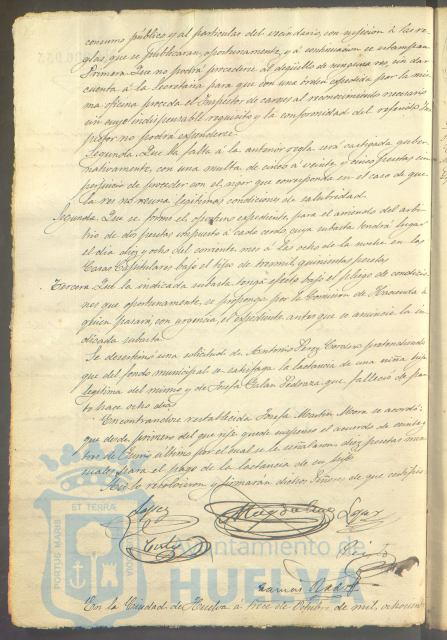 consumo público y al particular del vecindario, con sujeción á las re-
glas que se publicaran oportunamente, y á continuación se estampan
Primera. Que no podrá procederse al degüello de ninguna res, sin dar
cuenta á la Secretaria para que con una órden expedida por la mis-
ma oficina proceda el Inspector de carnes al reconocimiento necesario
sin cuyo indispensable requisito y la conformidad del referido Ins-
pector no podrá expenderse.
Segunda. Que la falta á la anterior regla será castigada guber-
nativamente, con una multa de cinco á veinte y cinco pesetas sin
perjuicio de proceder con el rigor que corresponda en el caso de que
la res no reuna legitimas condiciones de salubridad.
Segunda. Que se forme el oportuno expediente, para el arriendo del arbi-
trio de dos pesetas impuesto á cada cerdo, cuya subasta tendrá lugar
el dia diez y ocho del corriente mes á las ocho de la noche en las
Casas Capitulares bajo el tipo de tres mil quinientas pesetas
Tercera. Que la indicada subasta tenga efecto bajo el pliego de condicio-
nes que oportunamente se proponga por la Comision de Hacienda á
quien pasará, con urgencia, el expediente antes que se anuncie la in-
dicada subasta.
Se desestimó una solicitud de Antonio Perez Cordero pretendiendo
que del fondo municipal se satisfaga la lactancia de una niña hija
legitima del mismo y de Josefa Galan Pedraza que falleció de par-
to hace ocho dias.
Encontrandose restablecida Josefa Martin Mora se acordó:
que desde primero del que rije quede suspenso el acuerdo de veinte
de Junio ultimo por el cual se le señalaron diez pesetas men-
suales para el pago de la lactancia de su hijo
Así lo resolvieron y firmarán dichos Señores de que certifico.
Lopez
PORTUS MARIS
ET TERRAE
CUSTODIA
Ayuntamiento de
HUELVA
En la Ciudad de Huelva á trece de Octubre de mil ochocien-